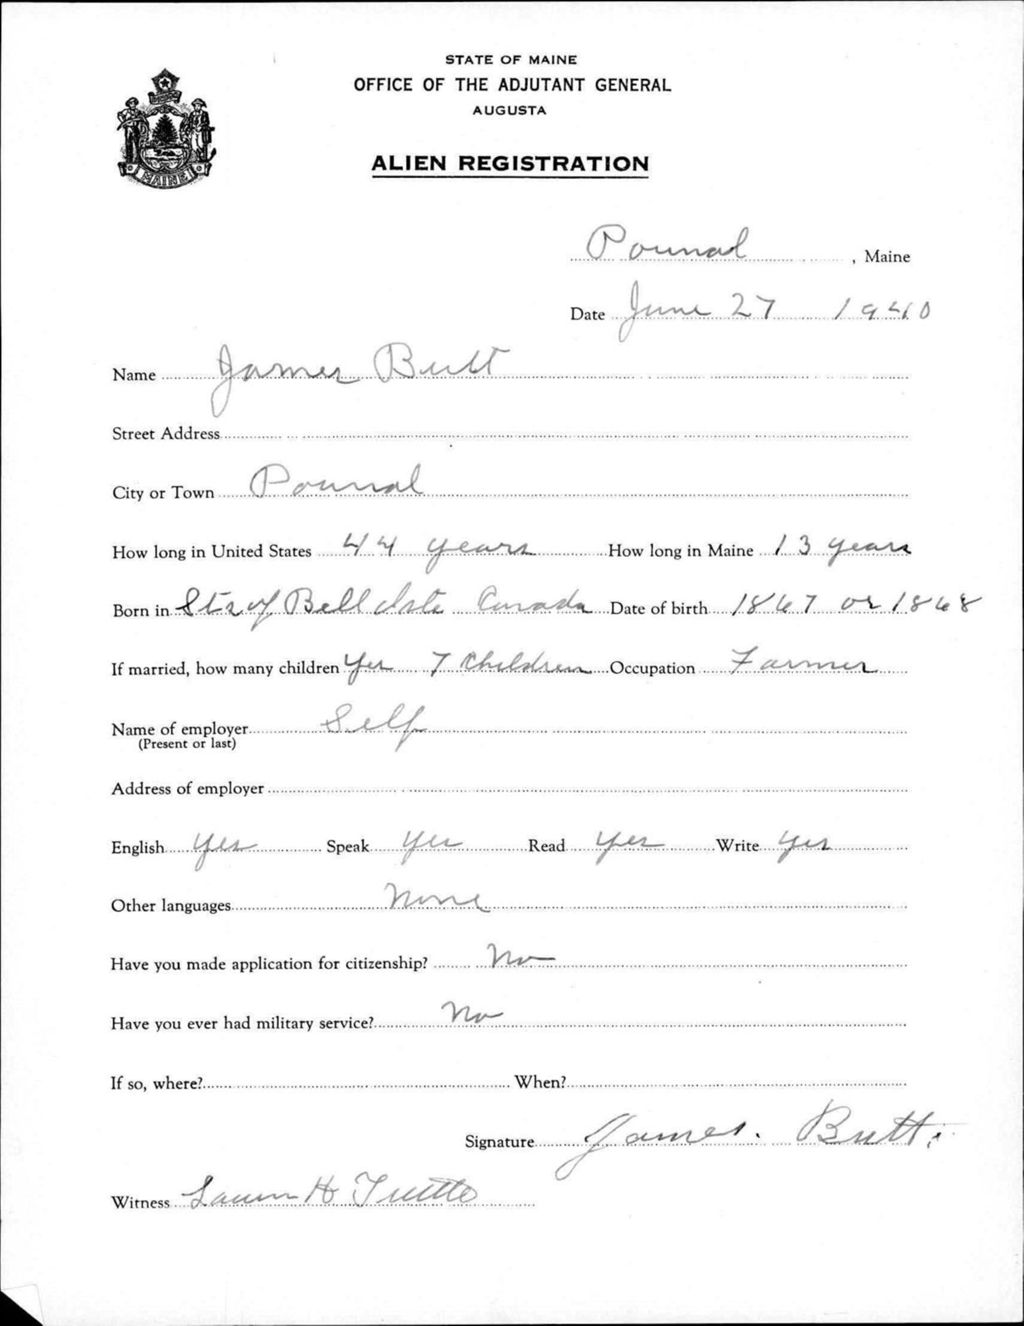 STATE OF MAINE
OFFICE OF THE ADJUTANT GENERAL
AUGUSTA
ALIEN REGISTRATION
MAINE
Pounal, Maine
Date June 27 1940
Name James Butt
Street Address
City or Town Pounal
How long in United States 44 years How long in Maine 13 years
Born in Str of Bell Isle Canada Date of birth 1867 or 1868
If married, how many children Yes 7 Children Occupation Farmer
Name of employer Self
(Present or last)
Address of employer
English Yes Speak Yes Read Yes Write Yes
Other languages None
Have you made application for citizenship? No
Have you ever had military service? No
If so, where? When?
Signature James. Butt.
Witness H Tuttle